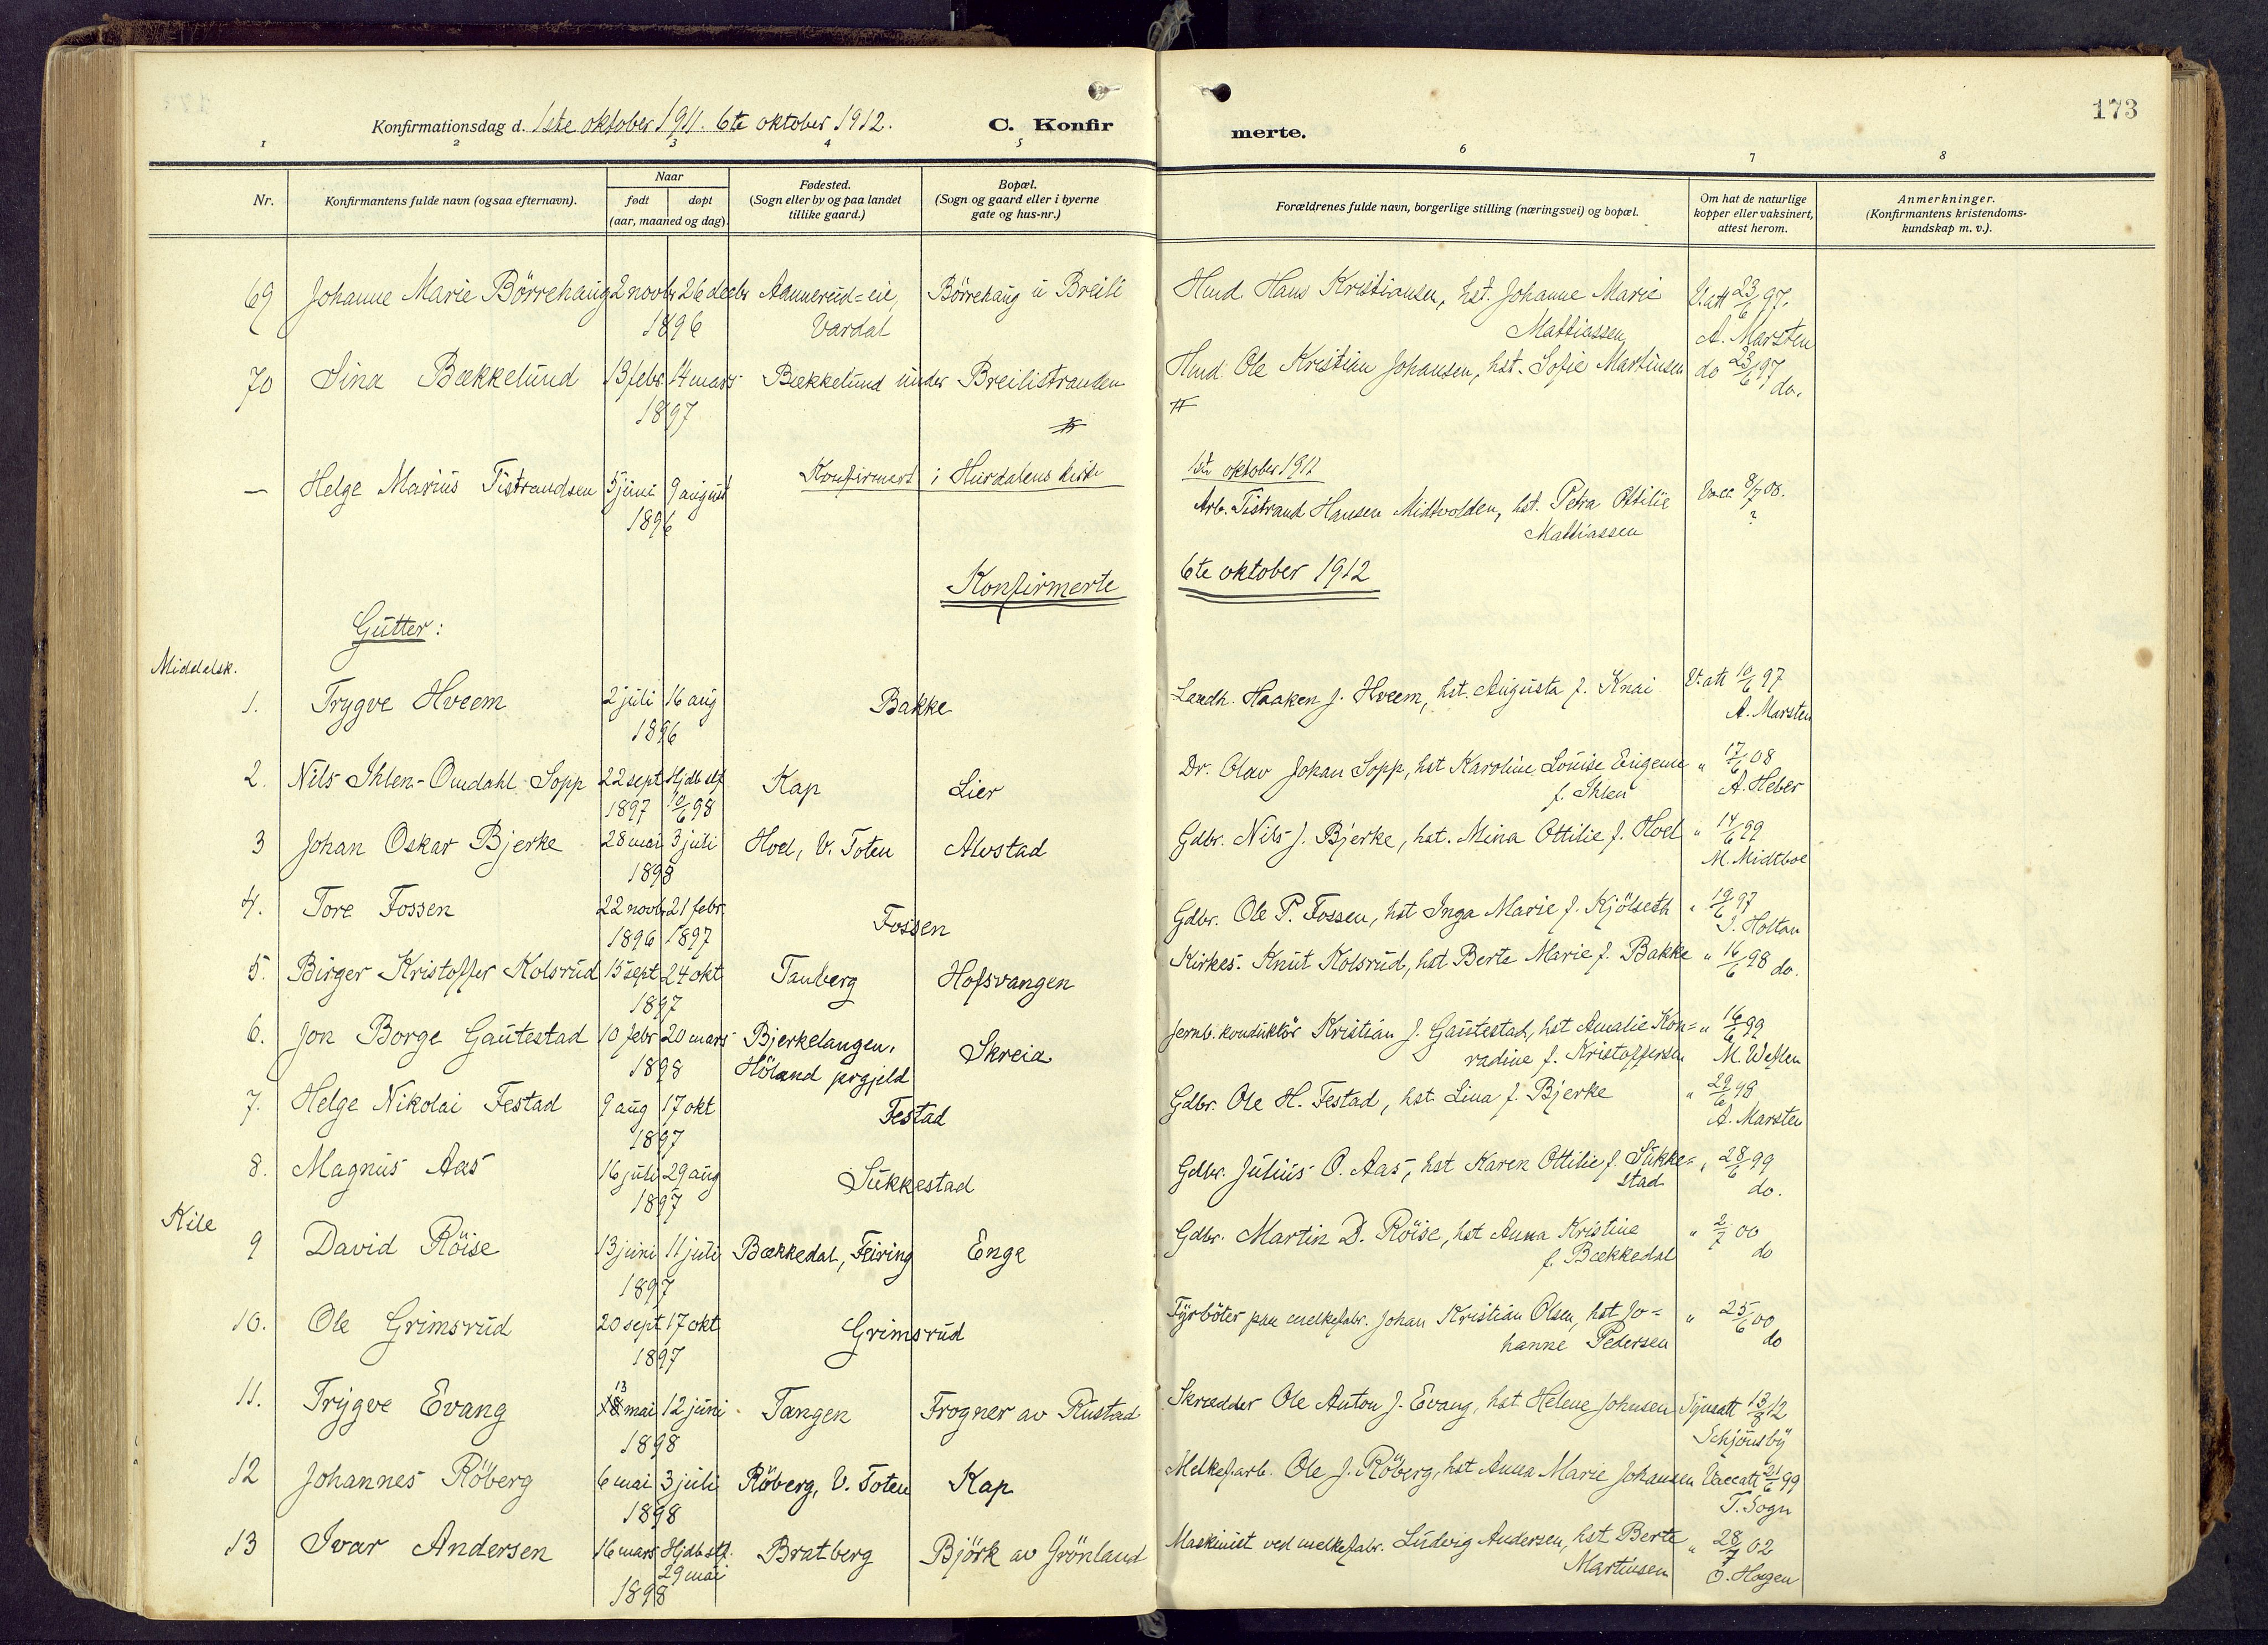 173
Konfirmationsdag d. 1ste oktober 1911. 6te oktober 1912. C. Konfirmerte.
1 2 3 4 5 6 7 8
Nr. Konfirmantens fulde navn (ogsaa efternavn). Naar født døpt (aar, maaned og dag) Fødested. (Sogn eller by og paa landet tillike gaard.) Bopæl. (Sogn og gaard eller i byerne gate og hus-nr.) Forældrenes fulde navn, borgerlige stilling (næringsvei) og bopæl. Om hat de naturlige kopper eller vaksinert, attest herom. Anmerkninger. (Konfirmantens kristendoms-kundskap m. v.).
69 Johanne Marie Börrehaug 2 novbr 26 decbr Aannerud=eie, Börrehaug u Breili Hmd Hans Kristiansen, hst. Johanne Marie V.att 23/6 97.
1896 Vardal Mattiassen A. Marsten
70 Sina Bækkelund 13 febr. 14 mars Bækkelund under Breilistranden Hmd. Ole Kristian Johansen, hst. Sofie Martinsen do 23/6 97
1897 do.
— Helge Marius Tistrandsen 5 juni 9 august Konfirmert i Hurdalens kirke 1ste oktober 1911
1896 Arb. Tistrand Hansen Midtvolden, hst. Petra Ottilie Vacc 8/7 08.
Mattiassen ?
Konfirmerte 6te oktober 1912
Gutter:
Middelsk.
1. Trygve Hveem 2 juli 16 aug Bakke Landh. Haaken J. Hveem, hst. Augusta f. Knai V. att 10/6 97
1896 A. Marsten
2. Nils Ihlen-Omdahl Sopp 22 sept Hjdb stf Kap Lier Dr. Olav Johan Sopp, hst Karoline Louise Eugenie " 17/6 08
1897 10/6 98 f. Ihlen A. Heber
3 Johan Oskar Bjerke 28 mai 3 juli Hoel, V. Toten Alvstad Gdbr. Nils J. Bjerke, hst. Mina Ottilie f. Hoel " 14/6 99
1898 M. Midtboe
4. Tore Fossen 22 novbr 21 febr. Fossen Gdbr. Ole P. Fossen, hst Inga Marie f. Kjölseth " 19/6 97
1896 1897 J. Holtan
5. Birger Kristoffer Kolsrud 15 sept 24 okt Tauberg Hofsvangen Kirkes. Knut Kolsrud, hst Berte Marie f. Bakke " 16/6 98 do.
1897
6. Jon Borge Gautestad 10 febr 20 mars Bjerkelangen, Skreia Jernb. konduktör Kristian J. Gautestad, hst Amalie Kon= " 16/6 99
1898 Höland prgjeld radine f. Kristoffersen M. Weflen
7. Helge Nikolai Festad 9 aug 17 okt Festad Gdbr. Ole H. Festad, hst. Lina f. Bjerke " 29/6 98
1897 A. Marsten
8. Magnus Aas 16 juli 29 aug Sukkestad Gdbr. Julius O. Aas, hst Karen Ottilie f. Sukke= " 28/6 99
1897 stad do.
Kile
9 David Röise 13 juni 11 juli Bækkedal, Feiring Enge Gdbr. Martin D. Röise, hst Anna Kristine " 2/7 00
1897 f. Bækkedal do
10. Ole Grimsrud 20 sept 17 okt Grimsrud Fyrböter paa melkefabr. Johan Kristian Olsen, hst Jo= " 25/6 00
1897 hanne Pedersen do
11. Trygve Evang 13 mai 12 juni Tangen Frogner av Rustad Skrædder Ole Anton J. Evang, hst Helene Johnsen Synsatt 13/8 12
1898 Schjönsby
12 Johannes Röberg 6 mai 3 juli Röberg, V. Toten Kap Melkef.arb. Ole J. Röberg, hst Anna Marie Johansen Vaccatt 21/6 99
1898 T. Sogn
13 Ivar Andersen 16 mars Hjdb stf. Bratberg Björk av Grönland Maskinist ved melkefabr. Ludvig Andersen, hst Berte " 28/7 02
29 mai Martinsen O. Hagen
1898